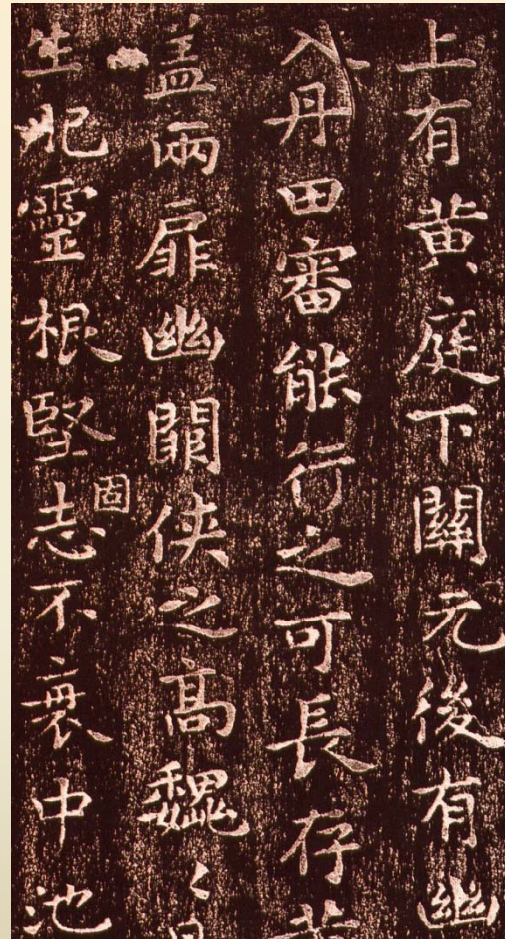 上有黄庭下關元後有幽
入丹田審能行之可長存
盖兩扉幽闕侠之高魏〻
生肥靈根堅固志不衰中池